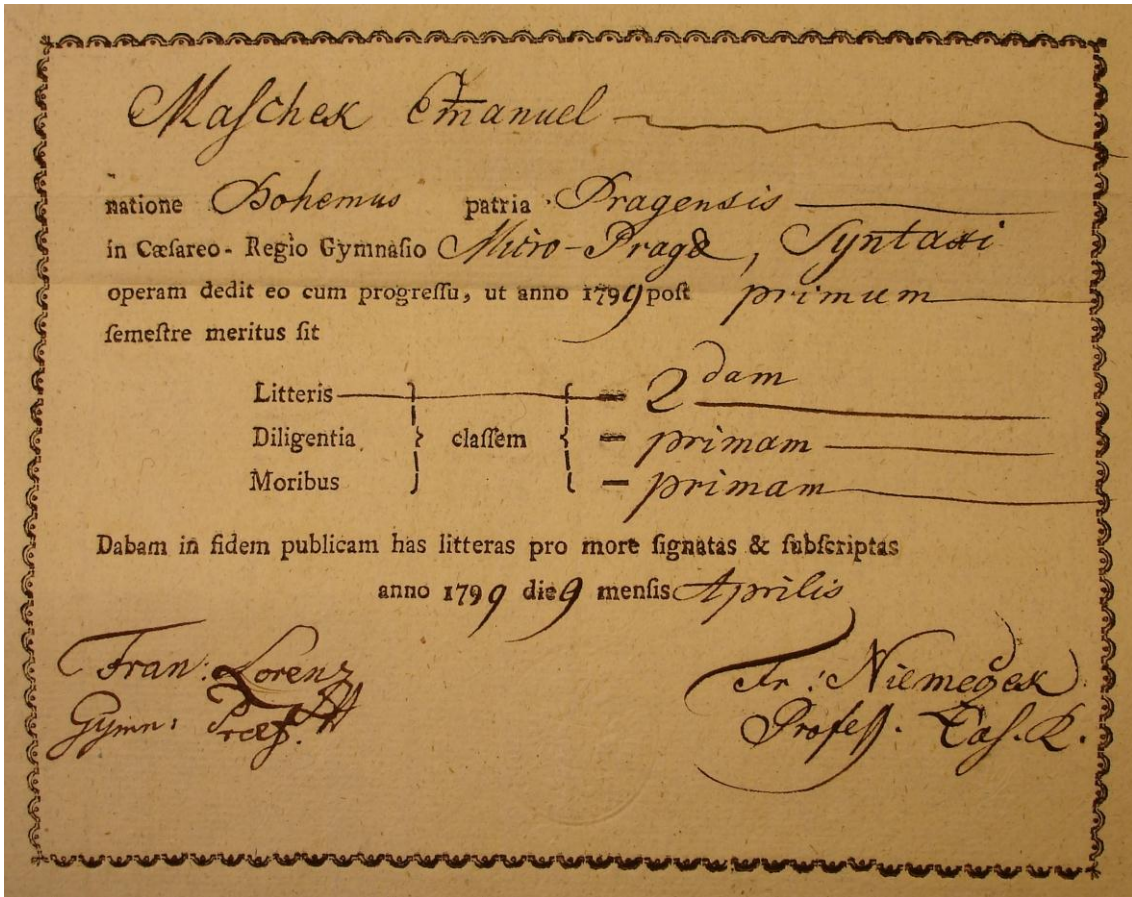 Maſchek Em̄anuel
natione Bohemus patria Pragensis
in Cæſareo-Regio Gymnaſio Micro-Pragæ, Syntaxi
operam dedit eo cum progreſſu, ut anno 1799 poſt primum
ſemeſtre meritus ſit
Litteris — 2dam
Diligentia } claſſem { — primam
Moribus — primam
Dabam in fidem publicam has litteras pro more ſignatas & ſubſcriptas
anno 1799 die 9 menſis Aprilis
Fran: Lorenz Fr: Niemeczek
Gymn: Præf. Profeſſ. Cæſ. R.